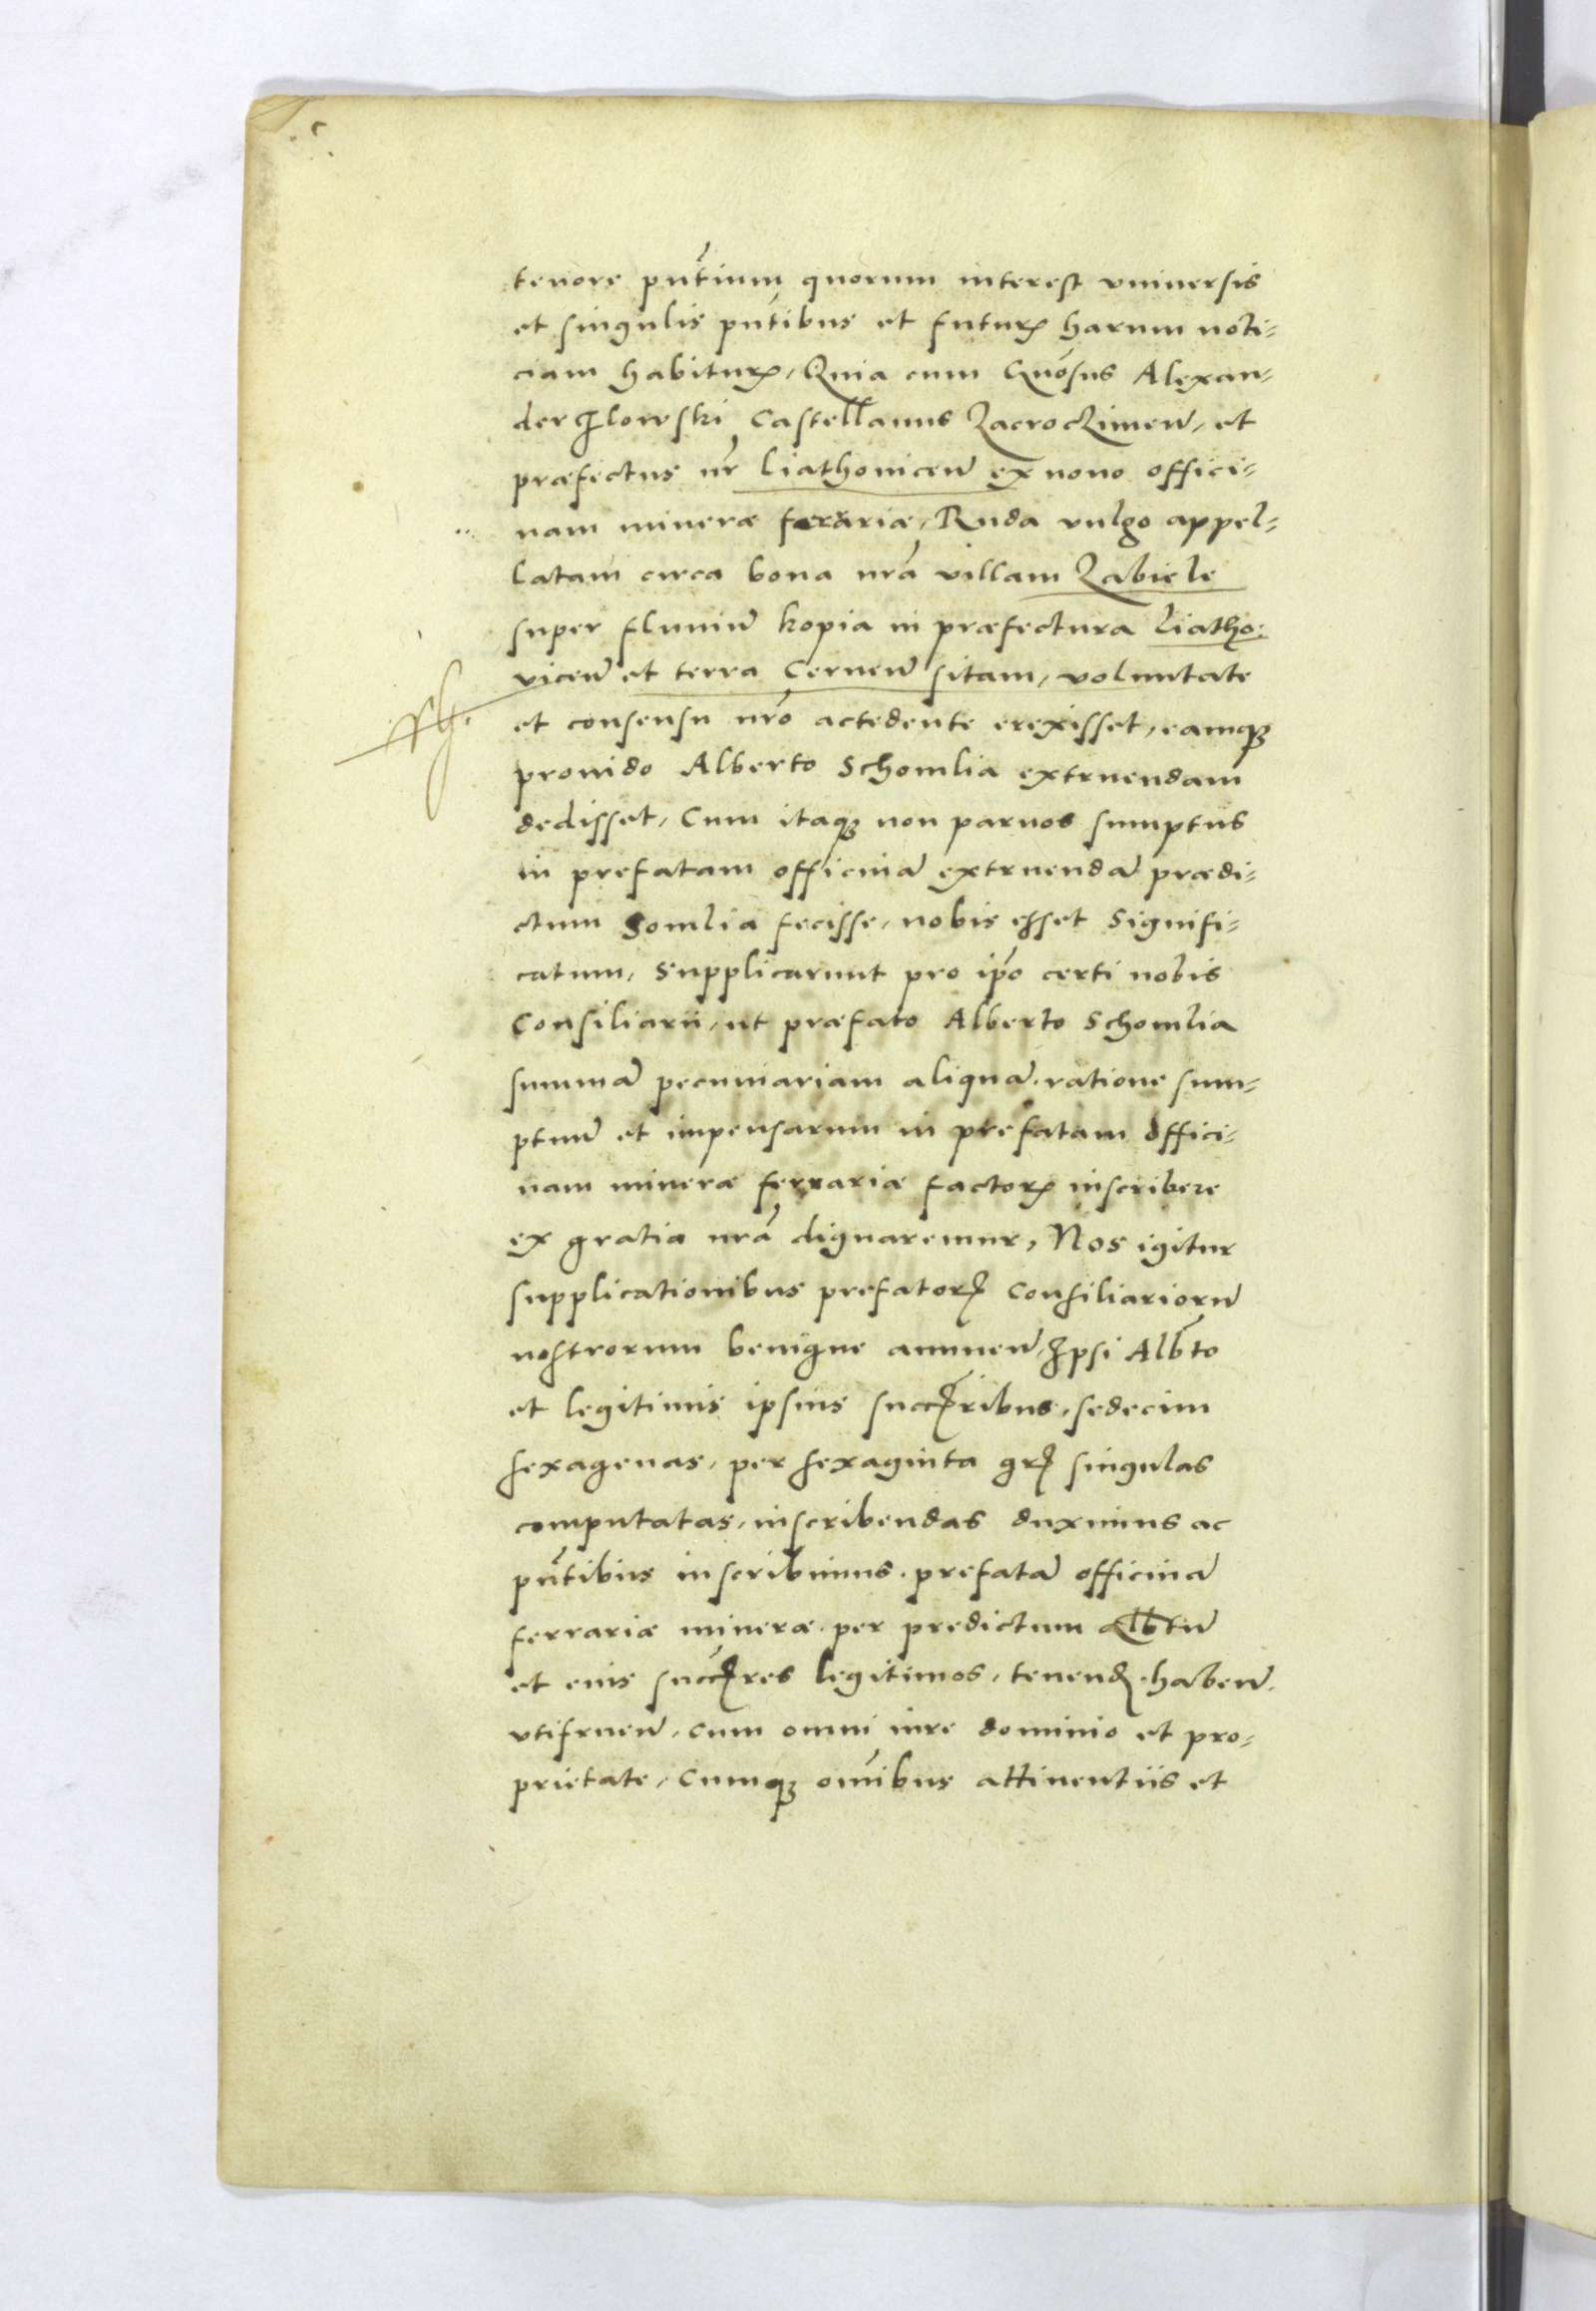 tenore pn̄tium quorum interest vniuersis
et singulis pn̄tibus et futurꝝ harum noti⸗
ciam habiturꝝ, Quia cum Gn̄osus Alexan⸗
der Ilowski Castellanus Zacrocƶimen̄, et
præfectus nr̄ Liathouicen̄ ex nouo offici⸗
nam mineræ ferariæ, Ruda vulgo appel⸗
latam circa bona nr̄a villam Zabiele
super fluuiū kopia in præfectura Liatho⸗
vicen̄ et terra Cernen̄ sitam, voluntate
et consensu nr̄o actedente erexisset, eamqȝ
prouido Alberto Schomlia extruendam
dedisset, Cum itaqȝ non paruos sumptus
in prefatam officinā extruendā prædi⸗
ctum Somlia fecisse, nobis esset Signifi⸗
catum, Supplicarunt pro ip̄o certi nobis
Consiliarii, ut præfato Alberto Schomlia
summā pecuniariam aliquā ratione sum⸗
ptuū et impensarum in prefatam Offici⸗
nam mineræ ferrariæ factorꝝ inscribere
ex gratia nr̄a dignaremur, Nos igitur
supplicationibus prefatorꝝ Consiliariorū
nostrorum benigne annuen̄, Ipsi Alb̄to
et legitimis ipsius succꝝribus, sedecim
sexagenas, per sexaginta grꝝ singulas
computatas, inscribendas duximus ac
pn̄tibus inscribimus. prefatā officinā
ferrariæ mineræ per predictum Alb̄tū
et eius succꝝres legitimos, tenenꝝ. haben̄.
vtifruen̄, cum omni iure dominio et pro⸗
prietate, Cumqȝ om̄ibus attinentiis et